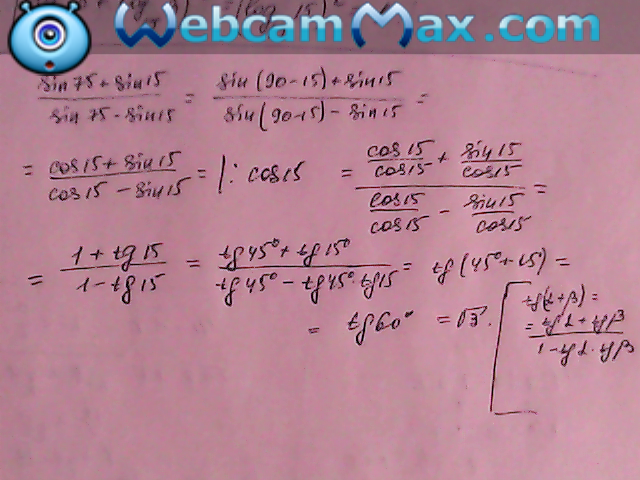 WebcamMax.com
sin 75 + sin 15 / sin 75 - sin 15 = sin (90-15) + sin 15 / sin (90-15) - sin 15 =
= cos 15 + sin 15 / cos 15 - sin 15 = |: cos 15 = cos 15 / cos 15 + sin 15 / cos 15 / cos 15 / cos 15 - sin 15 / cos 15 =
= 1 + tg 15 / 1 - tg 15 = tg 45° + tg 15° / tg 45° - tg 45° · tg 15 = tg (45° + 15°) =
= tg 60° = √3.
tg(α+β) =
= tg α + tg β / 1 - tg α · tg β